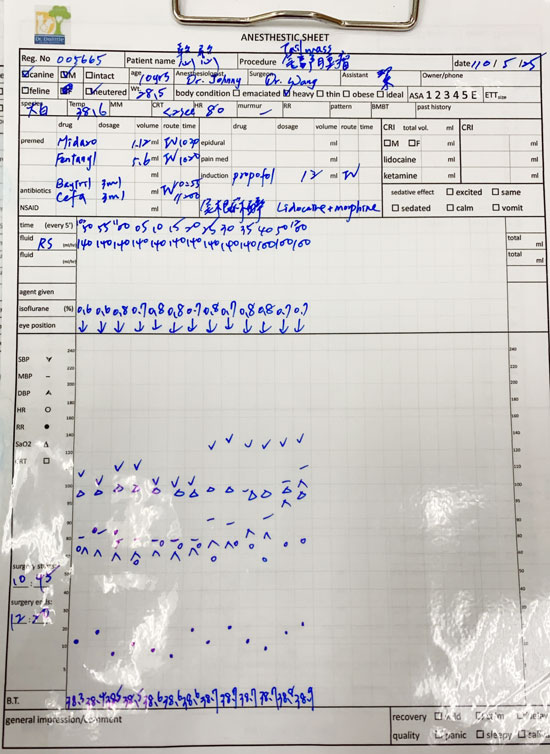 Dr. Dognicity
ANESTHESTIC SHEET
Reg. No 005665 Patient name Procedure Tail mass date 110/5/25
☑canine ☑M □intact age 10yrs Anesthesiologist Dr. Johnny Surgeon Dr. Wang Assistant Owner/phone
□feline □F neutered Wt 28.5 body condition □emaciated ☑heavy □thin □obese □ideal ASA 1 2 3 4 5 E ETT size
species Temp 38.6 MM CRT <2sec HR 80 murmur - RR pattern BMBT past history
drug dosage volume route time drug dosage volume route time CRI total vol. ml CRI
premed Midazo 1.12 ml IV 1020 epidural ml □M □F ml
Fentanyl 5.6 ml IV 1020 pain med ml lidocaine ml
ml induction propofol 12 ml IV ketamine ml
antibiotics Baytril 3ml ml IV 1055
Cefa 3ml ml 1200 sedative effect □excited □same
NSAID Lidocaine + morphine □sedated □calm □vomit
time (every 5') 50 55 11:00 05 10 15 20 25 30 35 40 50 1200 total
fluid RS (ml/hr) 140 140 140 140 140 140 140 140 140 140 100 100 100 ml
fluid (ml/hr) total
ml
agent given
isoflurane (%) 0.6 0.6 0.8 0.7 0.8 0.8 0.7 0.8 0.7 0.8 0.8 0.7 0.7
eye position ↓ ↓ ↓ ↓ ↓ ↓ ↓ ↓ ↓ ↓ ↓ ↓ ↓
240 240
SBP
220 220
MBP –
200 200
DBP
HR O
180 180
RR ●
160 160
SaO2 Δ
CRT □
140 140
120 120
100 100
80 80
60 60
surgery starts:
10:45
40
surgery ends:
20
B.T. 38.3 38.4 38.5 38.5 38.6 38.6 38.6 38.7 38.7 38.7 38.7 38.8 38.9
general impression/comment recovery
quality □panic □sleepy